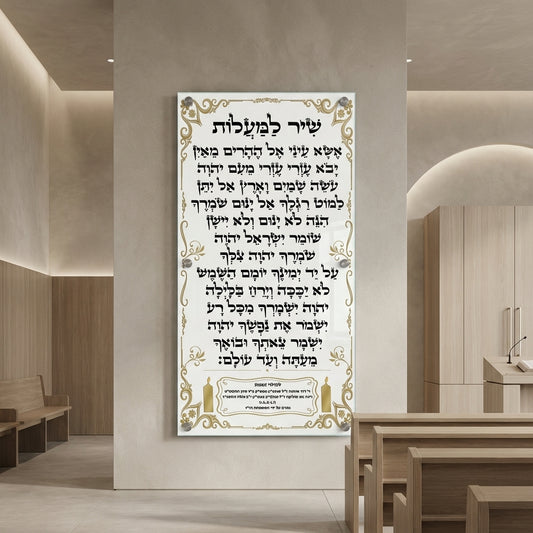 שִׁיר לַמַּעֲלוֹת
אֶשָּׂא עֵינַי אֶל הֶהָרִים מֵאַיִן
יָבֹא עֶזְרִי עֶזְרִי מֵעִם יהוה
עֹשֵׂה שָׁמַיִם וָאָרֶץ אַל יִתֵּן
לַמּוֹט רַגְלֶךָ אַל יָנוּם שֹׁמְרֶךָ
הִנֵּה לֹא יָנוּם וְלֹא יִישָׁן
שׁוֹמֵר יִשְׂרָאֵל יהוה
שֹׁמְרֶךָ יהוה צִלְּךָ
עַל יַד יְמִינֶךָ יוֹמָם הַשֶּׁמֶשׁ
לֹא יַכֶּכָּה וְיָרֵחַ בַּלָּיְלָה
יהוה יִשְׁמָרְךָ מִכָּל רָע
יִשְׁמֹר אֶת נַפְשֶׁךָ יהוה
יִשְׁמָר צֵאתְךָ וּבוֹאֶךָ
מֵעַתָּה וְעַד עוֹלָם:
לעילוי נשמת
ת.נ.צ.ב.ה